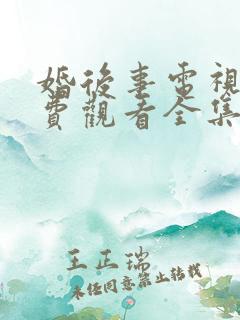 婚後事電視
費觀看全集
王正瑞
未经同意禁止转载